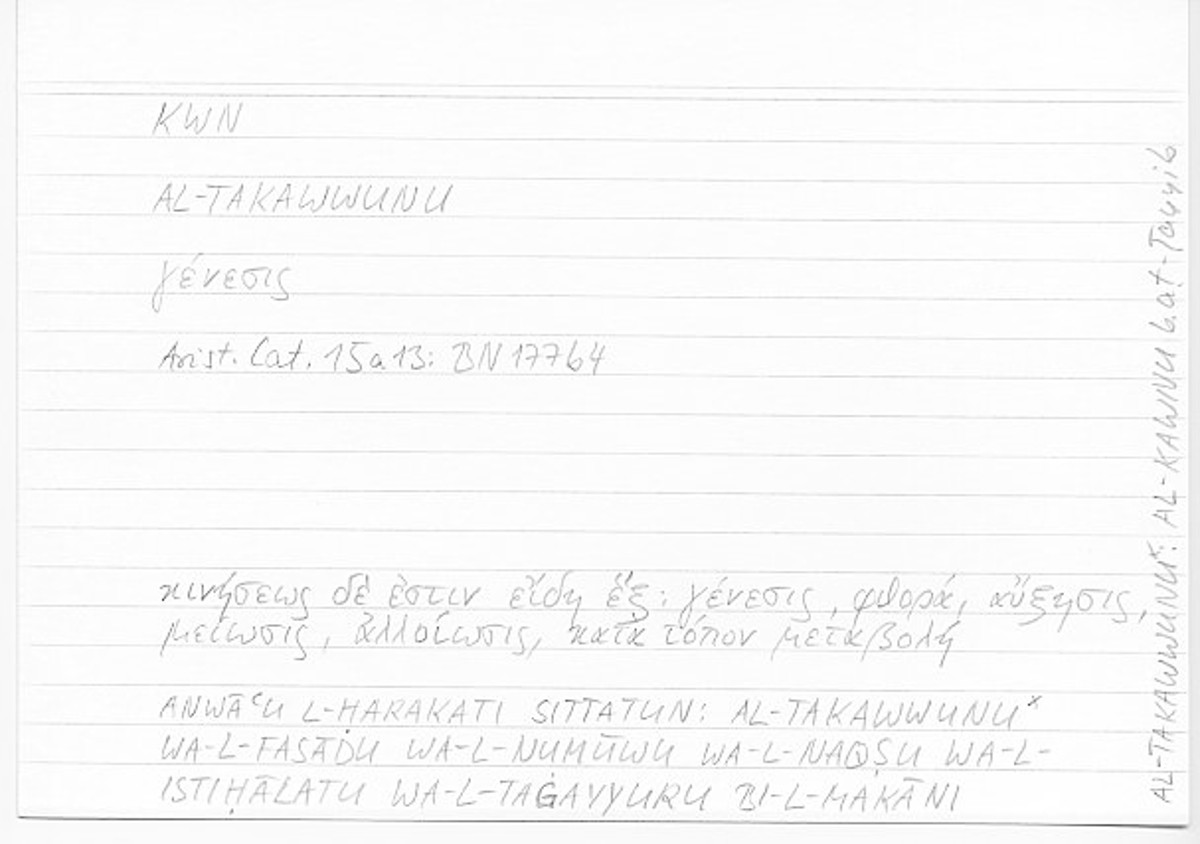 KWN
AL-TAKAWWUNU
γένεσις
Arist. Cat. 15a13: BN 17764
κινήσεως δέ ἐστιν εἴδη ἕξ: γένεσις, φθορά, αὔξησις,
μείωσις, ἀλλοίωσις, κατὰ τόπον μεταβολή
ANWĀʿU L-ḤARAKATI SITTATUN: AL-TAKAWWUNUˣ
WA-L-FASĀDU WA-L-NUMŪWU WA-L-NAQṢU WA-L-
ISTIḤĀLATU WA-L-TAĠAYYURU BI-L-MAKĀNI
AL-TAKAWWUNUˣ: AL-KAWNU b. aṭ-Ṭayyib